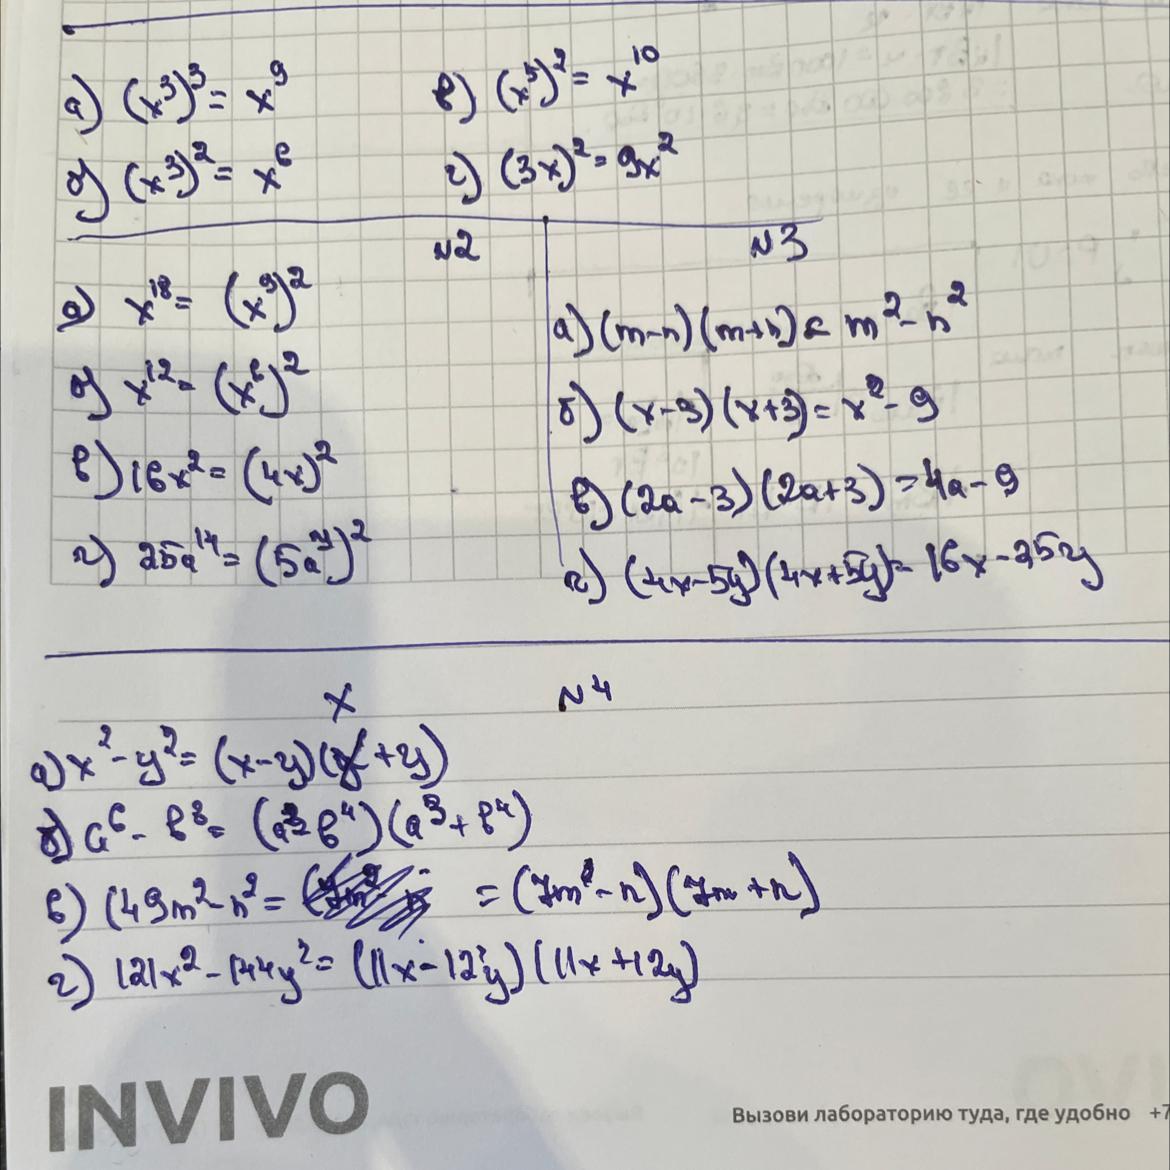 а) (x³)³ = x⁹ в) (x⁵)² = x¹⁰
б) (x³)² = x⁶ г) (3x)² = 9x²
N2
а) x¹⁸ = (x⁹)²
б) x¹² = (x⁶)²
в) 16x² = (4x)²
г) 25a¹⁴ = (5a⁷)²
N3
а) (m-n)(m+n) = m²-n²
б) (x-3)(x+3) = x²-9
в) (2a-3)(2a+3) = 4a-9
г) (4x-5y)(4x+5y) = 16x-25y
N4
x
а) x²-y² = (x-y)(x+y)
б) a⁶-b⁸ = (a³-b⁴)(a³+b⁴)
в) (49m²-n² = = (7m-n)(7m+n)
г) 121x²-144y² = (11x-12y)(11x+12y)
INVIVO
Вызови лабораторию туда, где удобно +7